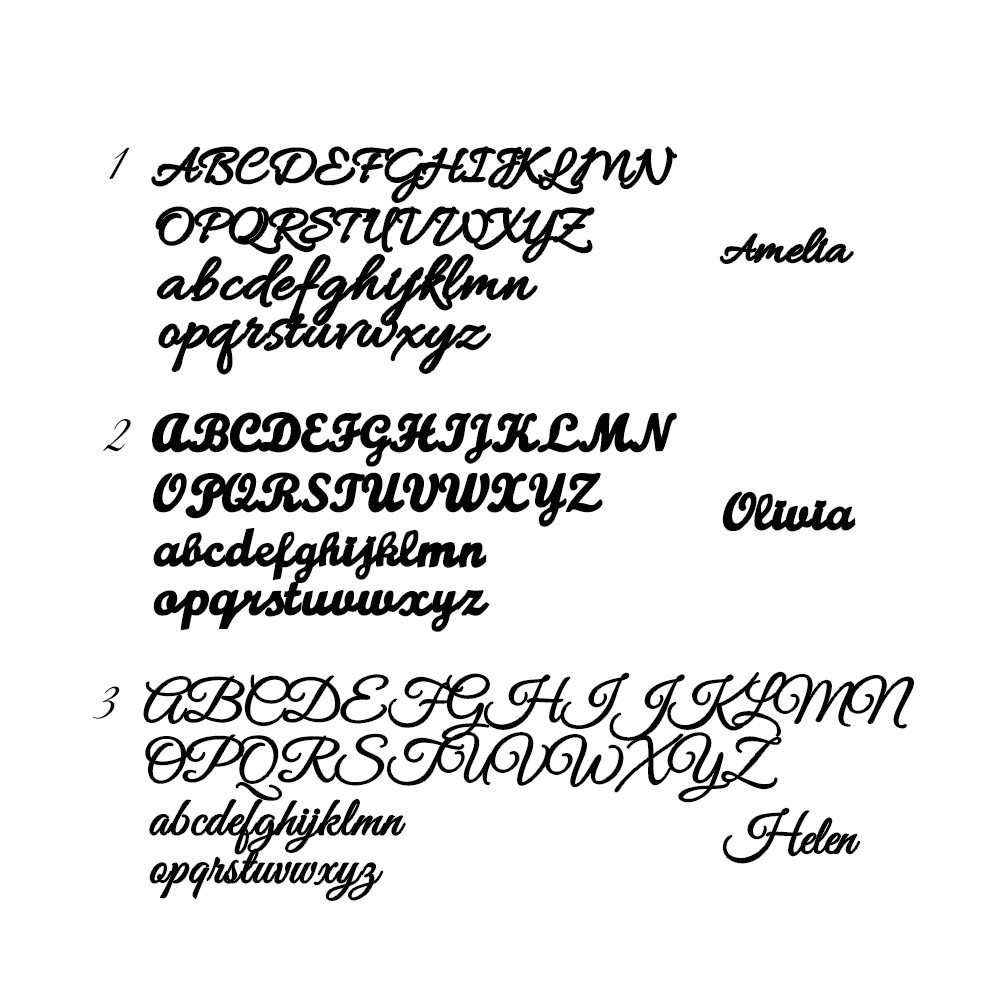 1 ABCDEFGHIJKLMN
OPQRSTUVWXYZ
Amelia
abcdefghijklmn
opqrstuvwxyz
2 ABCDEFGHIJKLMN
OPQRSTUVWXYZ
Olivia
abcdefghijklmn
opqrstuvwxyz
3 ABCDEFGHIJKLMN
OPQRSTUVWXYZ
abcdefghijklmn
Helen
opqrstuvwxyz